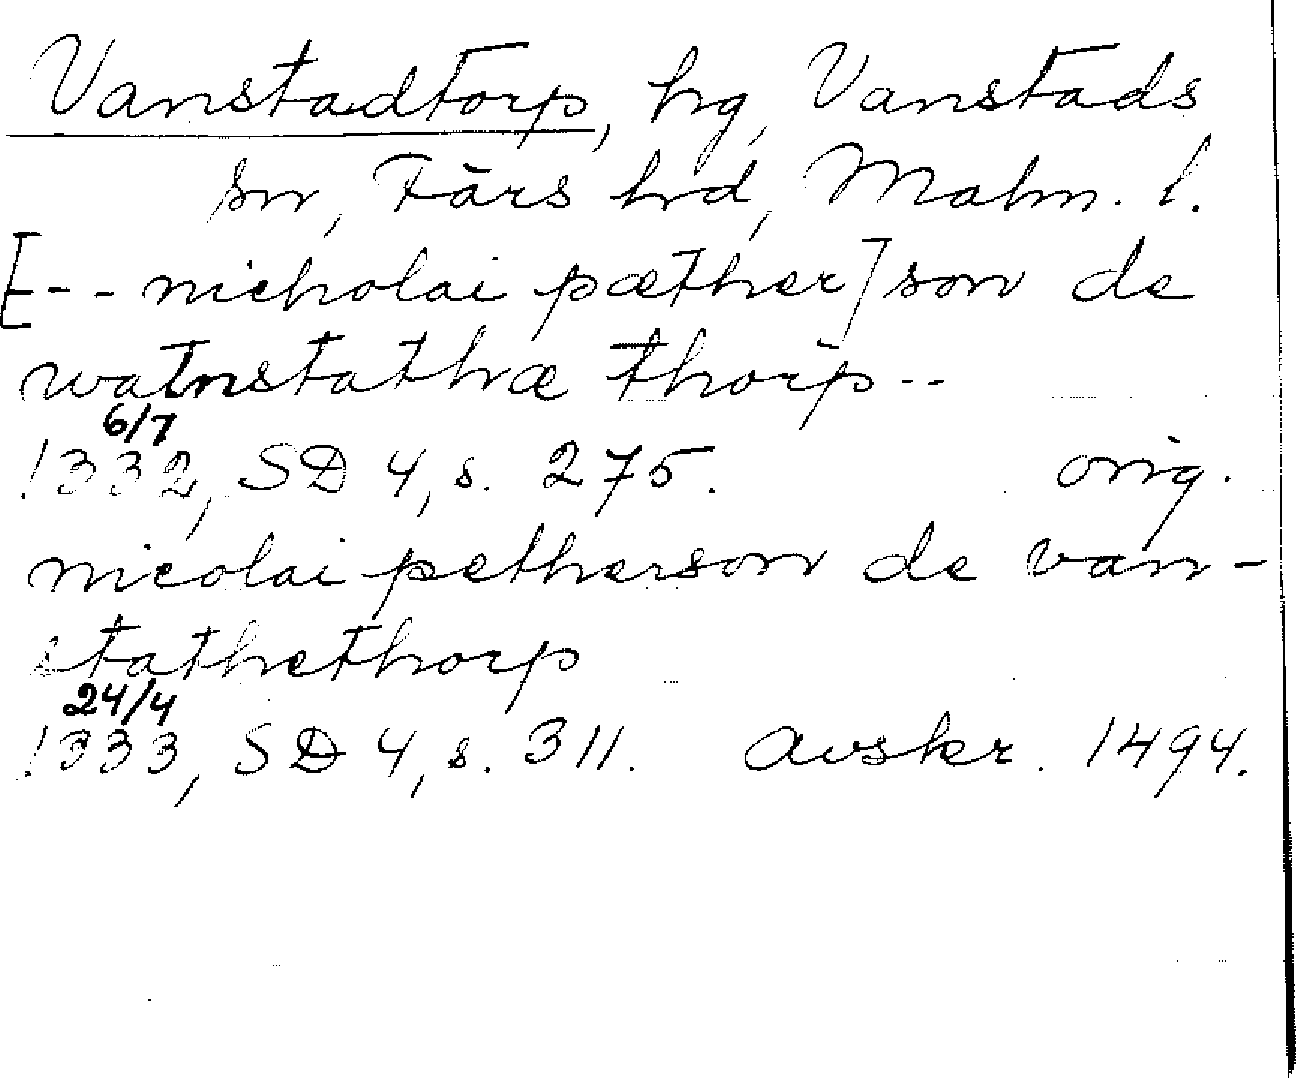 Vanstadtorp, hg, Vanstads
sn, Färs hd, Malm. l.
[-- nicholai pæther]son de
watnstathæ thorp--
6/7
1332, SD 4, s. 275. orig.
nicolai petherson de van-
stathethorp
24/4
1333, SD 4, s. 311. avskr. 1494.